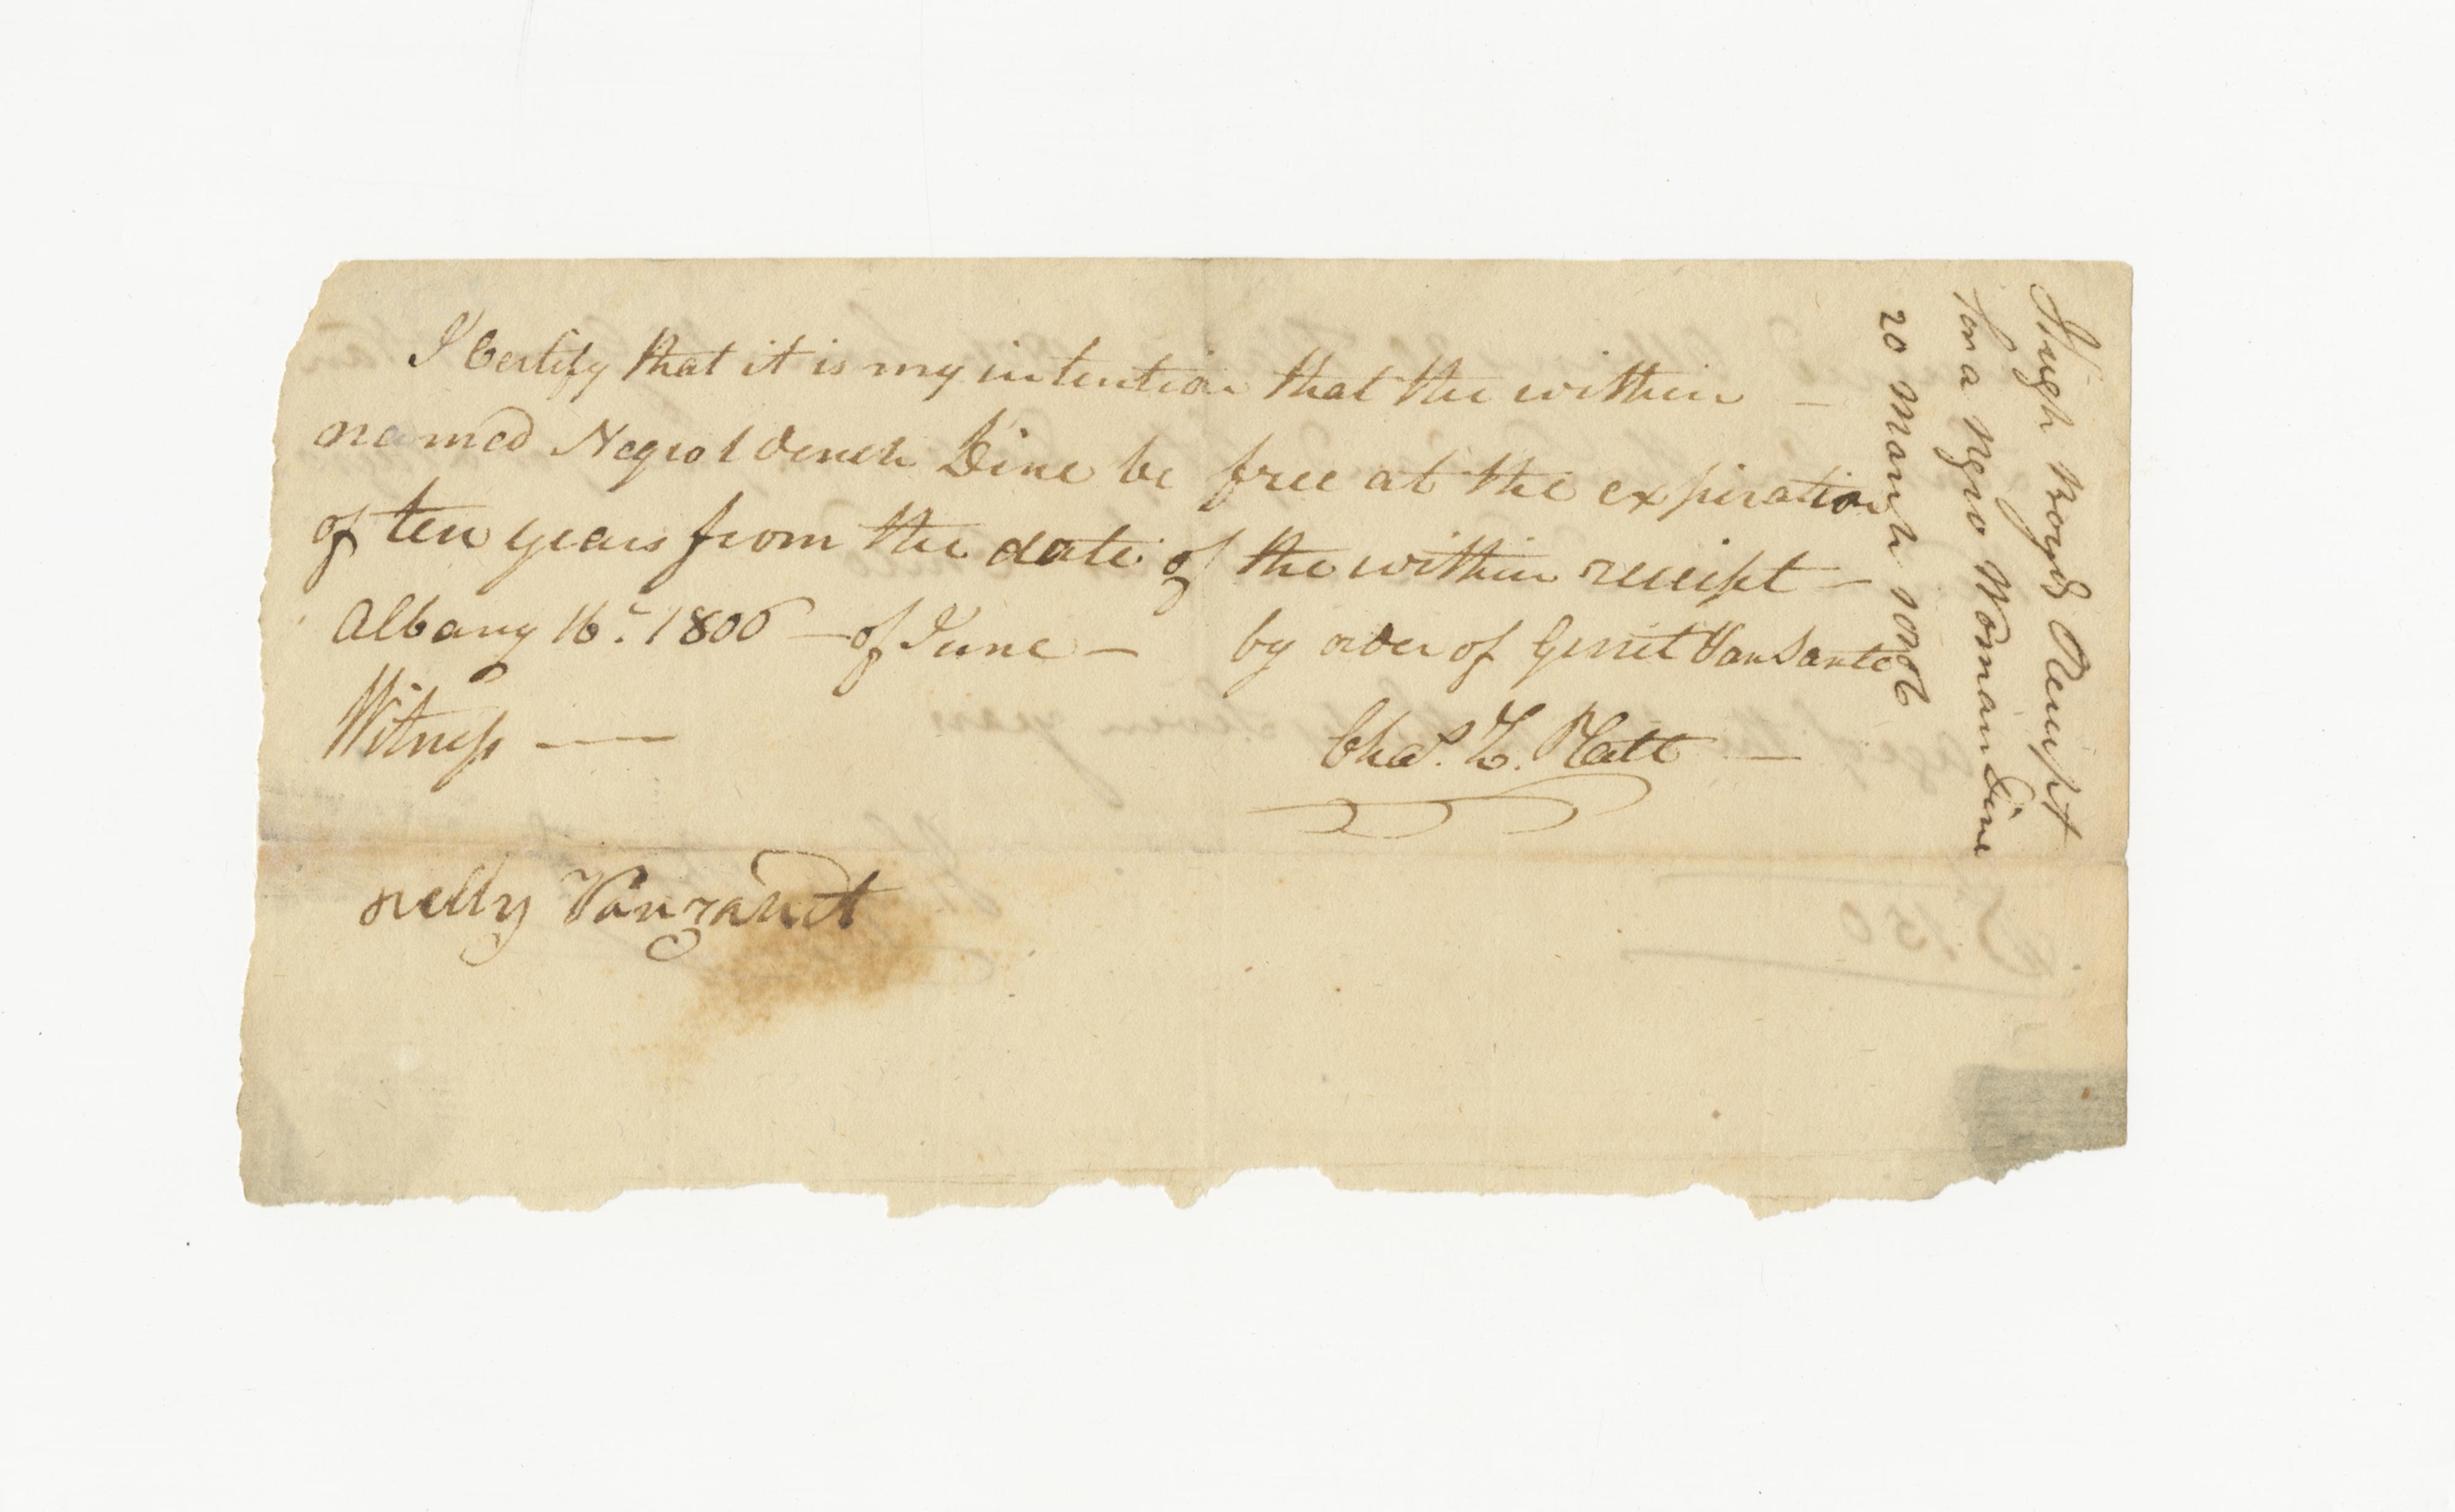 I Certify that it is my intention that the within –
named Negro Wench Dine be free at the expiration
of ten years from the date of the within receipt –
Albany 16th. 1806 – of June – by order of Gerrit Van Sante
Witness — Chas. Z. Platt —
Nelly Vanzandt
Hugh Receipt
For a Negro Woman Dine
20 March 1806
$ 150